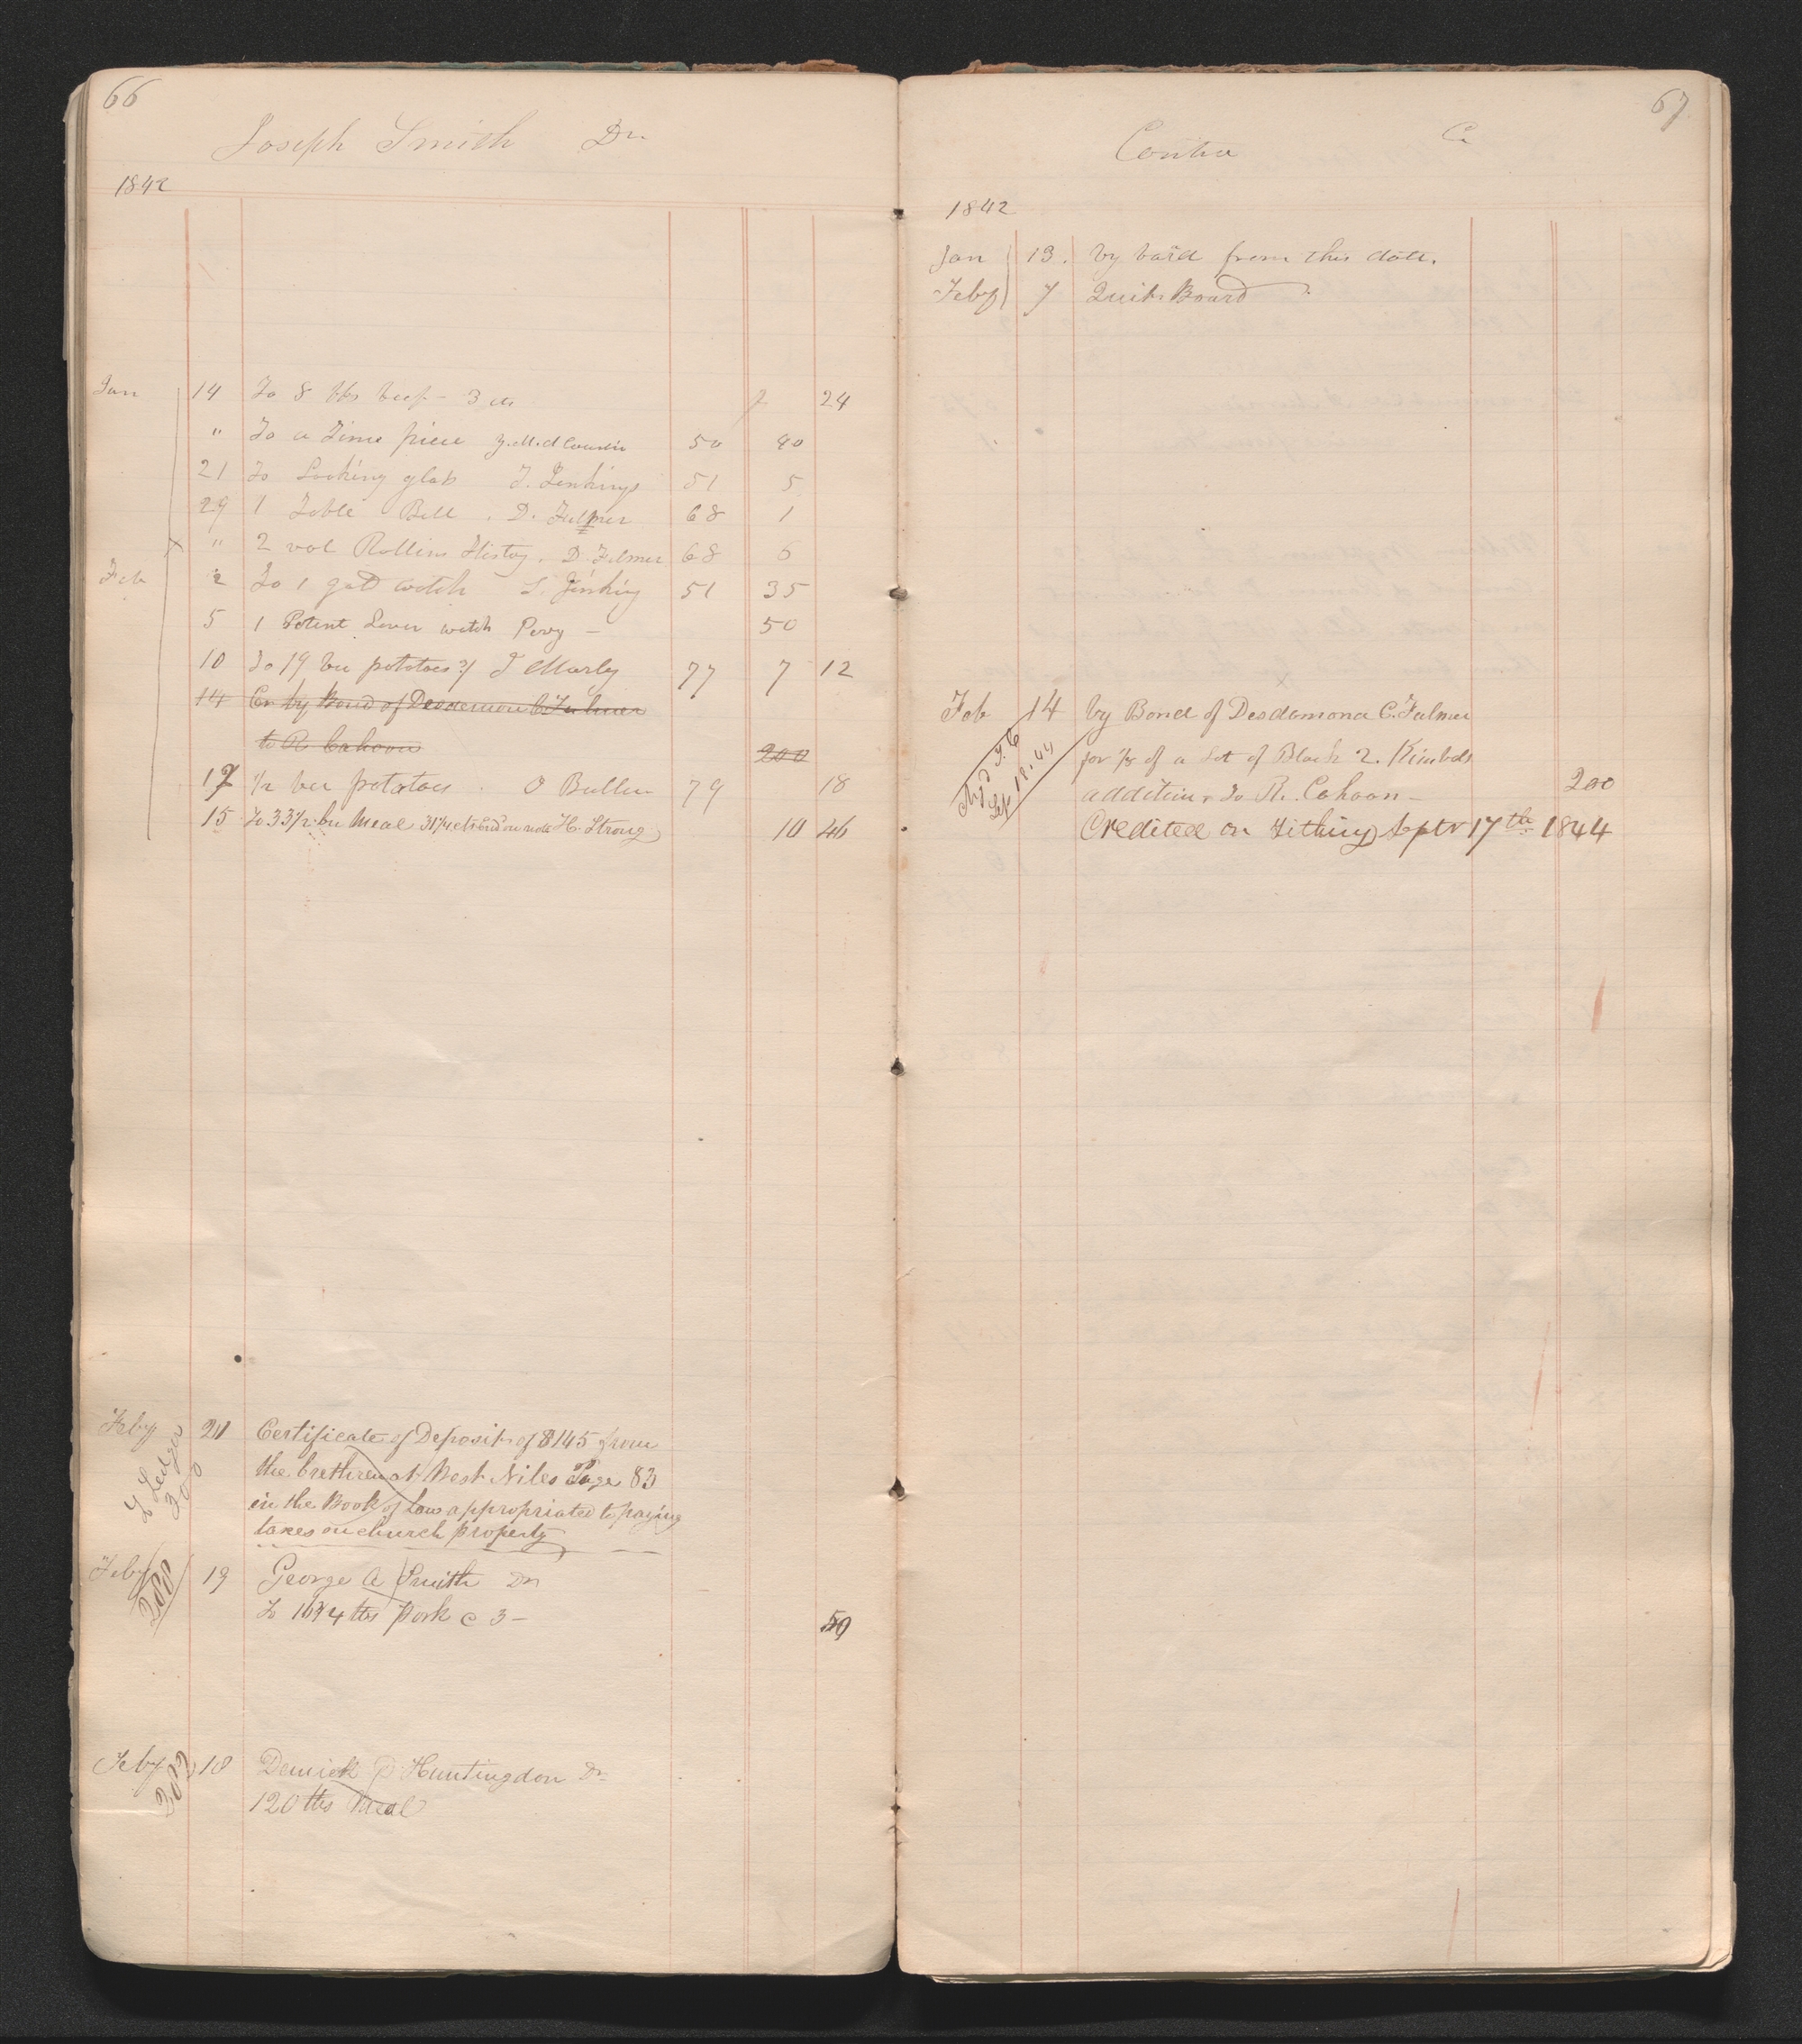 66
Joseph Smith Dr
1842
Jan 14 To 8 lbs beef - 3 cts 24
" To a Time piece 50 40
21 To Looking glass T. Jenkings 51 5
29 1 Table Bell . D. Fulmer 68 1
" 2 vol Rollins Histoy . D. Fulmer 68 6
Feb 2 To 1 gold watch T. Jenking 51 35
5 1 Patent Lever watch Perry - 50
10 To 19 bu potatoes 3/ T Marley 77 7 12
14 Cr by Bond of Desdemona C Fulmer
to R Cahoon 200
17 1/2 bu potatoes . O Buller 79 18
15 To 33 1/2 bu Meal 31 1/4 cts end on note H. Strong 10 46
Feby 21 Certificate of Deposit of $145 from
the brethren at West Niles Page 83
in the Book of Law appropriated to paying
taxes on church property
To Ledger
300
Feby 19 George A Smith Dr
To lbs Pork c 3 -
Feby 18 Demick Huntingdon Dr
120 lbs Meal
67
Contra Cr
1842
Jan 13. by bord from this date.
Feby 7 Quit Board
Feb 14 by Bond of Desdemona C. Fulmer
for 1/8 of a Lot of Block 2. Kimbals
addition. To R. Cahoon - 200
Credited on Tithing Septr 17th 1844